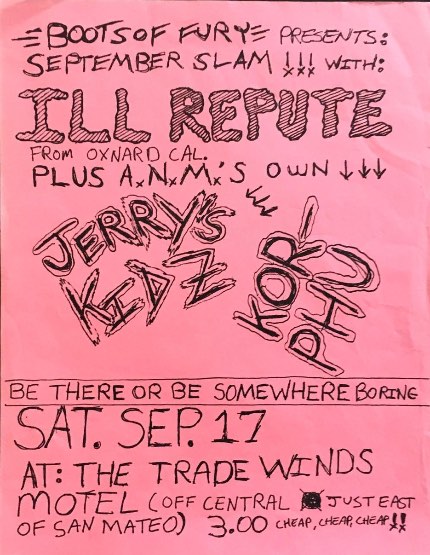 BOOTS OF FURY PRESENTS:
SEPTEMBER SLAM !!! WITH:
ILL REPUTE
FROM OXNARD CAL.
PLUS A.N.M.'S OWN ↓↓↓
JERRY'S
KIDZ
KOR-
PHU
BE THERE OR BE SOMEWHERE BORING
SAT. SEP. 17
AT: THE TRADE WINDS
MOTEL (OFF CENTRAL JUST EAST
OF SAN MATEO) 3.00 CHEAP, CHEAP, CHEAP!!